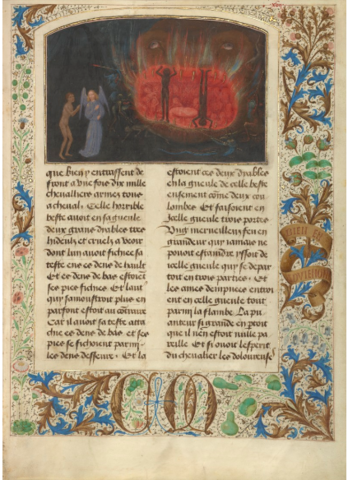 que bien y entrassent de
front a une fois dix mille
chevalliers armez tous
a cheval. Celle horrible
beste avoit en sa gueule
deux grans dyables tres
hideux et cruelz a veoir
dont lun avoit fichee sa
teste es dens de hault
et es dens de bas estoient
ses piez fichies. Et laut
qui samonstroit plus en
parfont estoit au contraire
Car il avoit sa teste atta
chie es dens de bas et ses
piez se fichoient parmy
les dens desseure. Et la
estoient ces deux dyables
en la gueule de celle beste
ensement come deux cou
lombes. Et faisoient en
icelle gueule trois portes
Ung merveilleux feu en
grandeur qui jamais ne
pouoit estaindre yssoit de
icelle gueule qui se depar
toit en trois parties. Et
les ames dempnees entroi
ent en celle gueule tout
parmi la flambe. La pu
anteur si grande en yssoit
que il nen estoit nulle pa
reille. Et si avoit lesperit
du chevalier les doloureuse